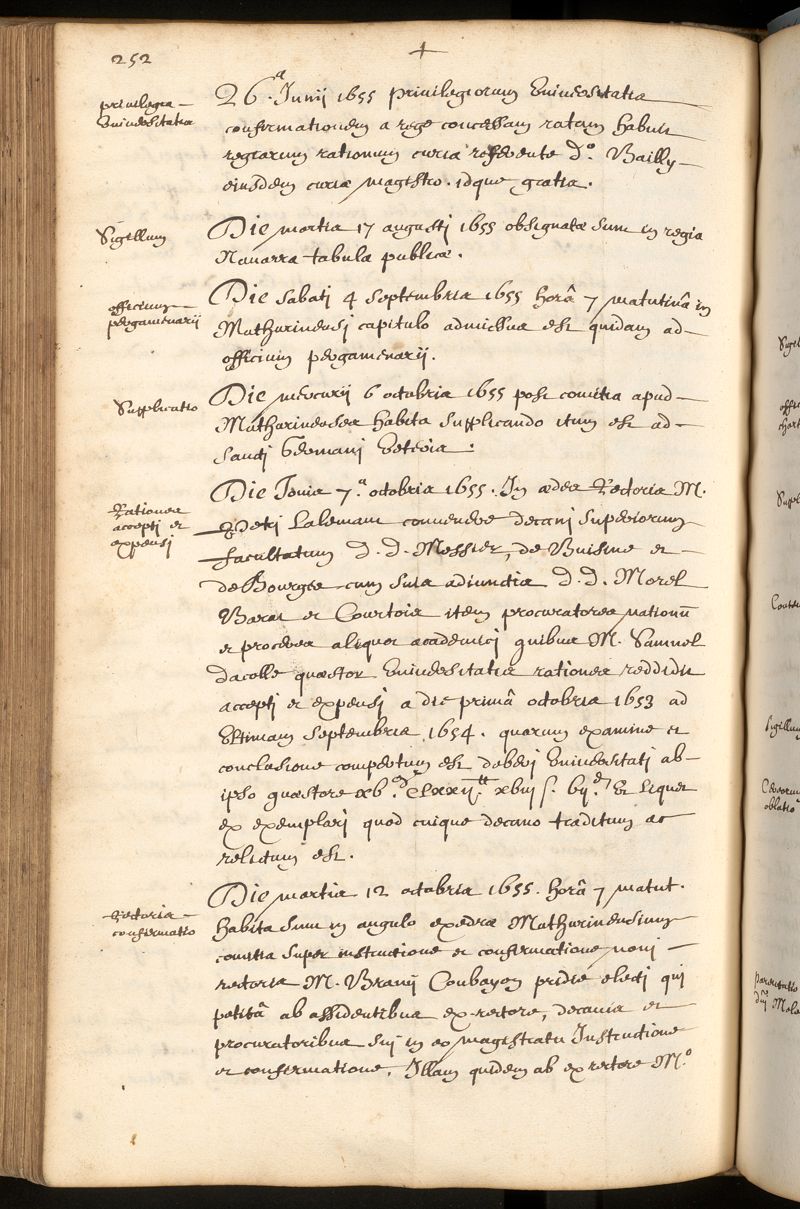 252
+
privilegia
Vniversitatis
26.a Junij 1655 privilegiorum Vniversitatis
confirmationem a rege concessam ratam habuit
regiarum rationum curia referente D.o Bailly
eiusdem curiæ magistro. idque gratis.
Sigillum
Die martis 17 augusti 1655 obsignatæ sunt in regia
Navarra tabulæ publicæ.
officium
pergamenarij
Die Sabati 4 Septembris 1655 horâ 7 matutinâ in
Mathurinensi capitulo admissus est quidam ad
officium pergamenarij.
Supplicatio
Die mercurij 6 octobris 1655 post comitia apud
Mathurinenses habita supplicando itum est ad
Sancti Germani
Rationes
accepti et
expensi
Die Jovis 7.a octobris 1655. In ædes Rectoris M.
Petri Lalemant convenere decani Superiorum
facultatum D. D. Messier, de Buisine et
de Bourges cum suis adiunctis D. D. Morel
Barat et Courtois item procuratores nationũ
et proceres aliquot academici quibus M. Samuel
dacolle quæstor Vniversitatis rationes reddidit
accepti et expensi a die primâ octobris 1653 ad
Vltimam Septembris 1654. quarum examine et
conclusione compertum est deberi Vniversitati ab
ipso quæstore Et liquet
ex exemplari quod cuique decano traditum ac
relictum est.
Rectoris
confirmatio
Die martis 12 octobris 1655. horâ 7 matut.
habita sunt in angulo exedræ Mathurinensium
comitia super instructione et confirmatione novi
rectoris M. Coubayon pridie electi qui
petitâ ab assidentibus ex-rectore, decanis et
procuratoribus sui in eo magistratu Instructione
et confirmatione. Illam quidem ab ex rectore M.o